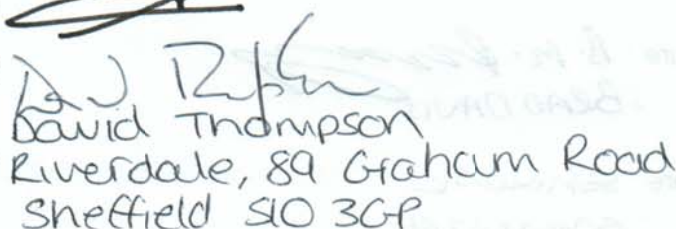 David Thompson
Riverdale, 89 Graham Road
Sheffield S10 3GP